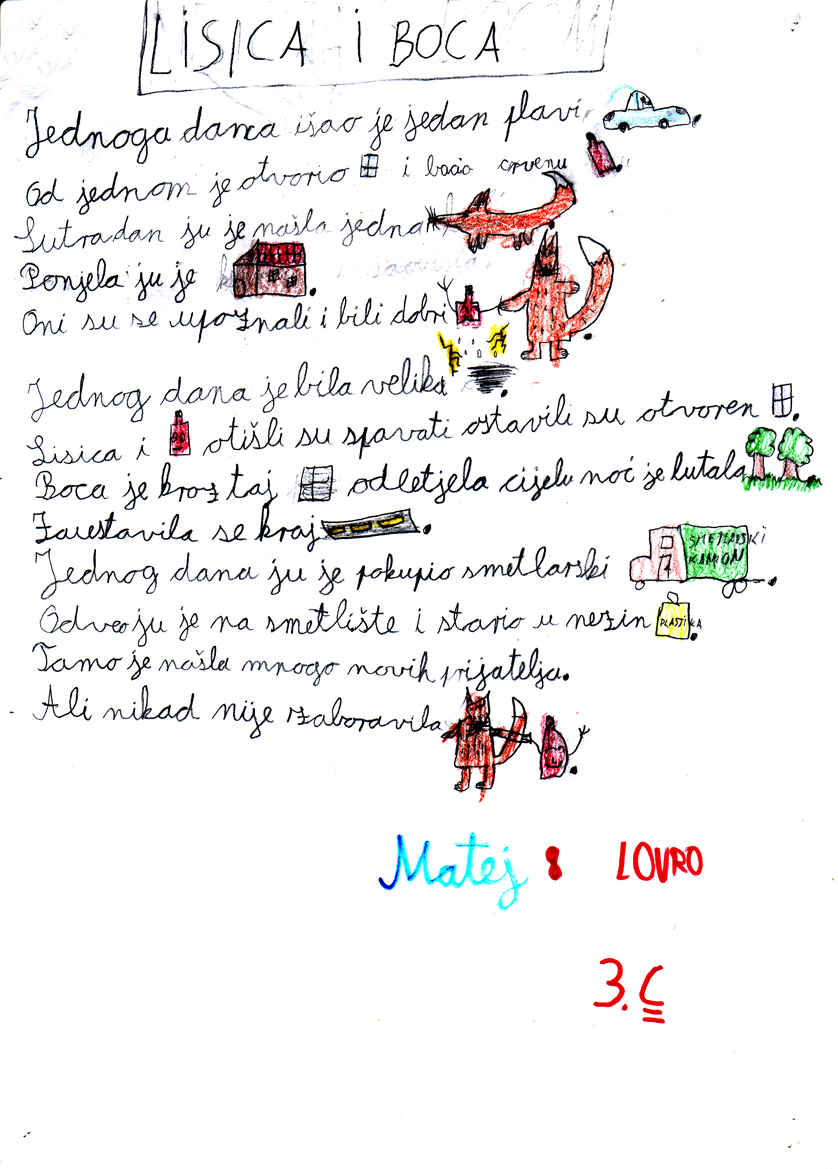 LISICA I BOCA
Jednoga danca išao je jedan plavi
Od jednom je otvorio i bacio crvenu
Sutradan ju je našla jedna
Ponjela ju je
Oni su se upoznali i bili dobri
Jednog dana je bila velika
Lisica i otišli su spavati ostavili su otvoren
Boca je kroz taj odletjela cijelu noć je lutala
Zaustavila se kraj
Jednog dana ju je pokupio smetlarski
SMETLARSKI
KAMION
Odveo ju je na smetlište i stavio u nezin
PLASTIKA
Tamo je našla mnogo novih prijatelja.
Ali nikad nije zaboravila
Matej 8 LOVRO
3. C